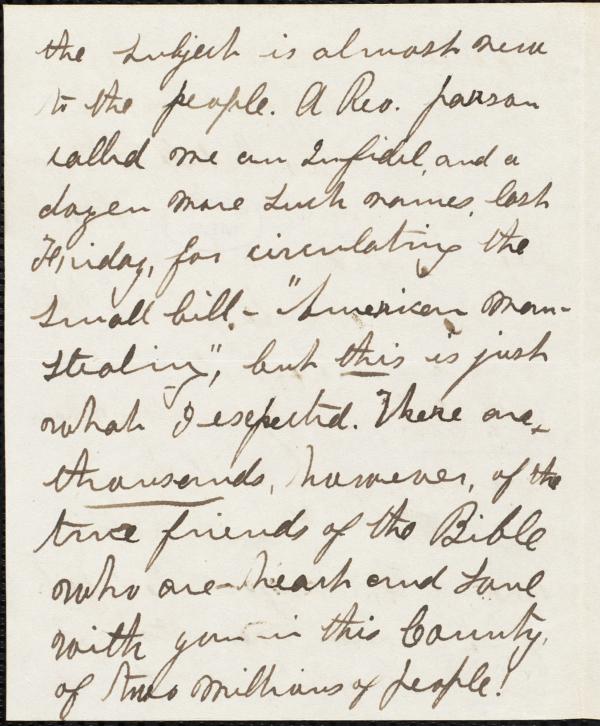 the subject is almost new
to the people. A Rev. parson
called me an Infidel, and a
dozen more such names, last
Friday, for circulating the
small bill - "American Man-
Stealing", but this is just
what I expected. There are
thousands, however, of the
true friends of the Bible
who are heart and soul
with you in this County,
of two millions of people!